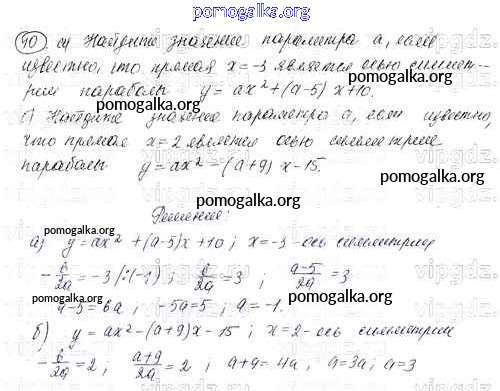 pomogalka.org
40 а) Найдите значение параметра а, если
известно, что прямая x = -3 является осью симмет-
рии параболы y = ax² + (a-5) x + 10.
pomogalka.org pomogalka.org
б) Найдите значение параметра а, если известно,
что прямая x = 2 является осью симметрии
pomogalka.org
параболы y = ax² - (a+9) x - 15.
pomogalka.org
Решение:
pomogalka.org
pomogalka.org
а) y = ax² + (a-5)x + 10; x = -3 - ось симметрии
pomogalka.org
- b/2a = -3 /:(-1); b/2a = 3; a-5/2a = 3
pomogalka.org
a-5 = 6a; -5a = 5; a = -1.
pomogalka.org
б) y = ax² - (a+9)x - 15; x = 2 - ось симметрии
pomogalka.org
- b/2a = 2, a+9/2a = 2; a+9 = 4a; a = 3a; a = 3
pomogalka.org
vipgdz